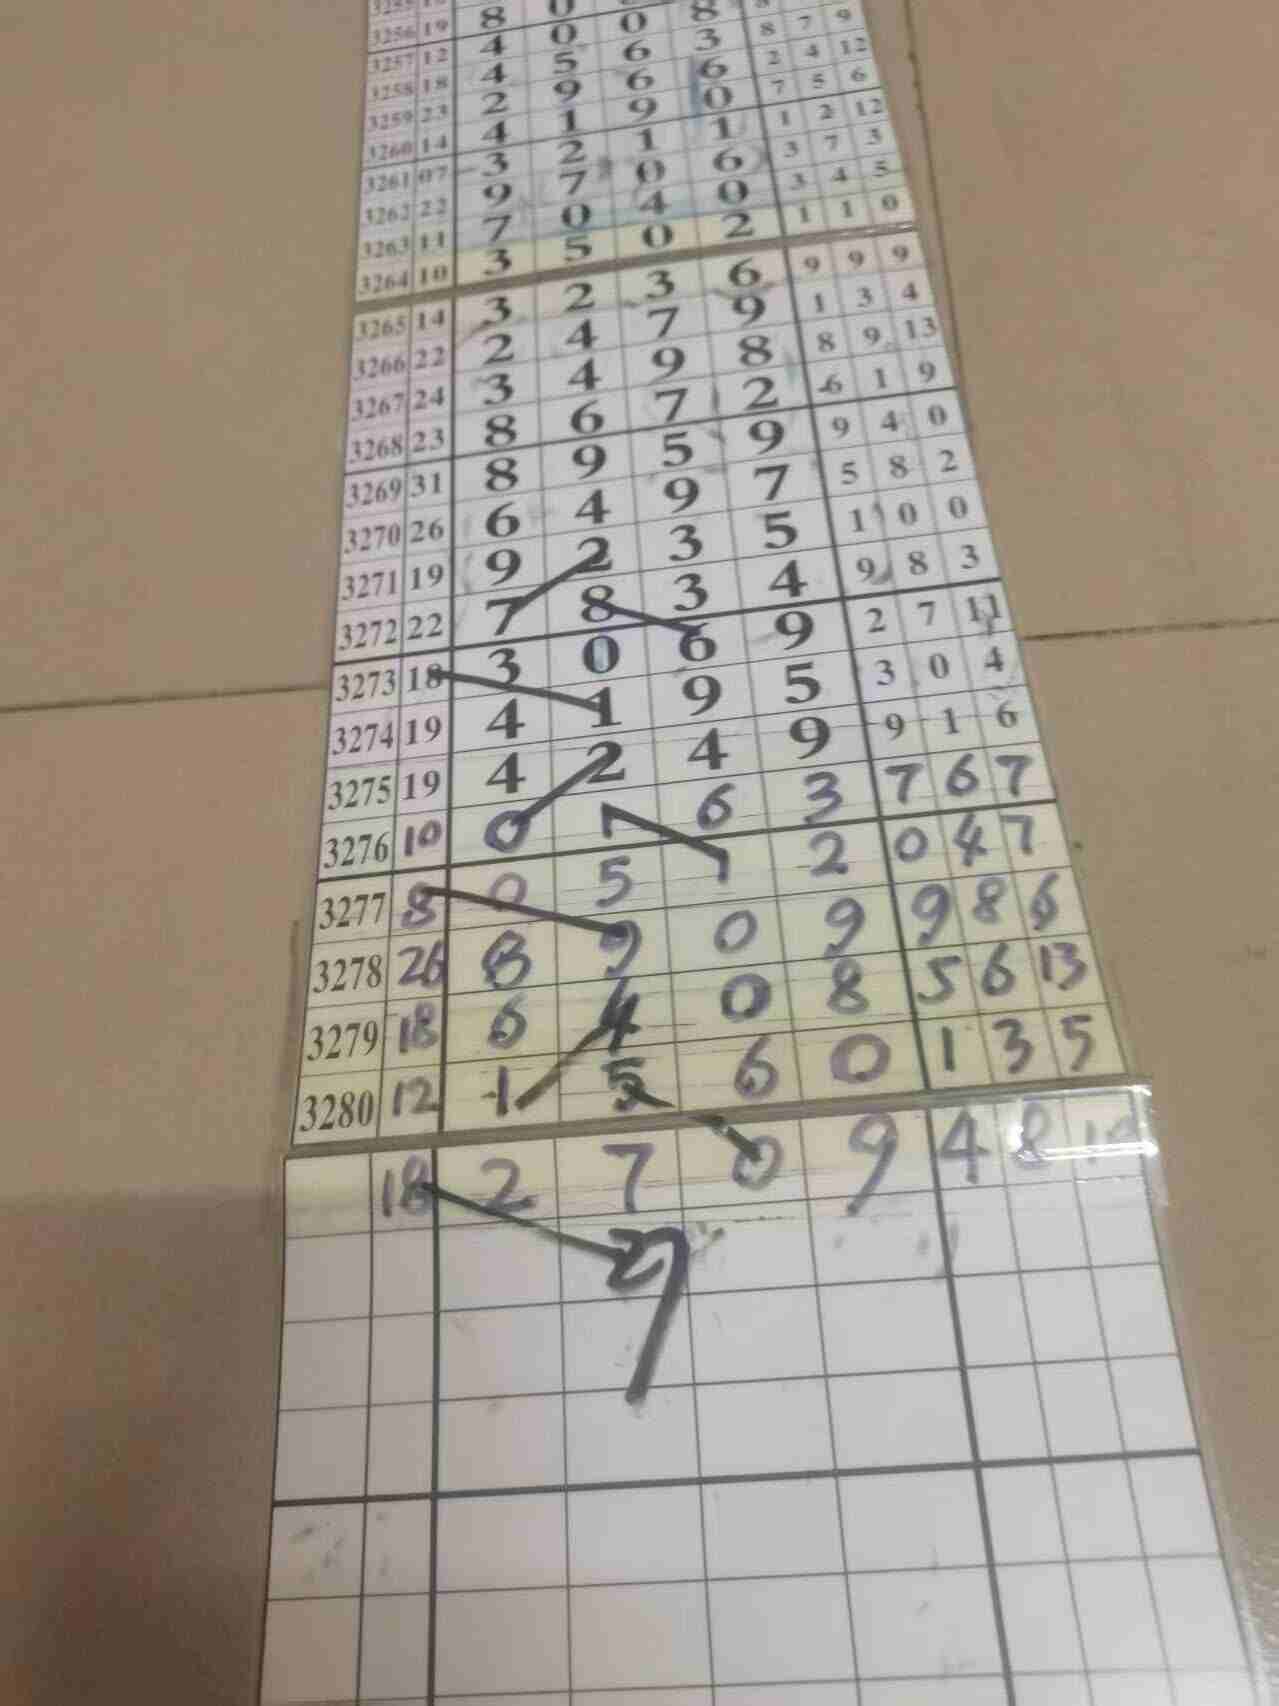 3256 19 8 0 0 8 8 7 9
3257 12 4 0 6 3 2 4 12
3258 18 4 5 6 6 7 5 6
3259 23 2 9 9 0 1 2 12
3260 14 4 1 1 1 3 7 3
3261 07 3 2 0 6 3 4 5
3262 22 9 7 4 0 1 1 0
3263 11 7 0 0 2
3264 10 3 5
3265 14 3 2 3 6 9 9 9
3266 22 2 4 7 9 1 3 4
3267 24 3 4 9 8 8 9 13
3268 23 8 6 7 2 6 1 9
3269 31 8 9 5 9 9 4 0
3270 26 6 4 9 7 5 8 2
3271 19 9 2 3 5 1 0 0
3272 22 7 8 3 4 9 8 3
3273 18 3 0 6 9 2 7 11
3274 19 4 1 9 5 3 0 4
3275 19 4 2 4 9 9 1 6
3276 10 0 7 6 3 7 6 7
3277 8 0 5 1 2 0 4 7
3278 26 8 9 0 9 9 8 6
3279 18 6 4 0 8 5 6 13
3280 12 1 5 6 0 1 3 5
18 2 7 0 9 4 8
27